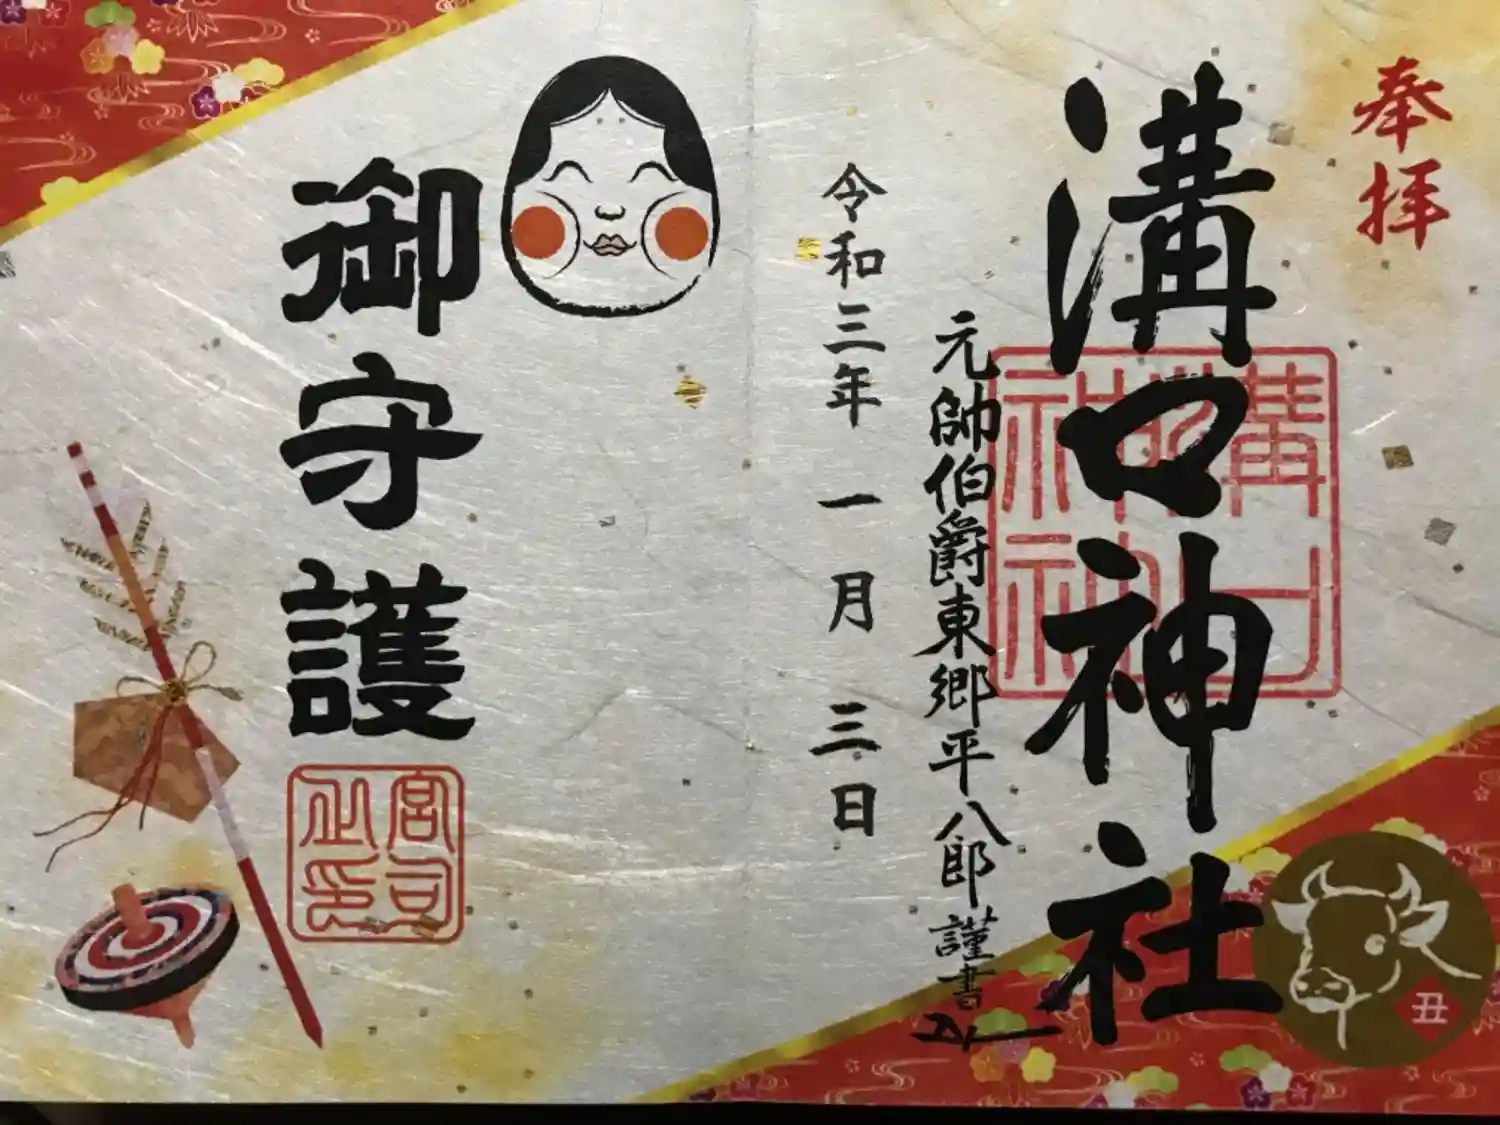 奉拝
溝口神社
溝口神社
元帥伯爵東郷平八郎謹書
令和三年一月三日
御守護
宮司之印
丑